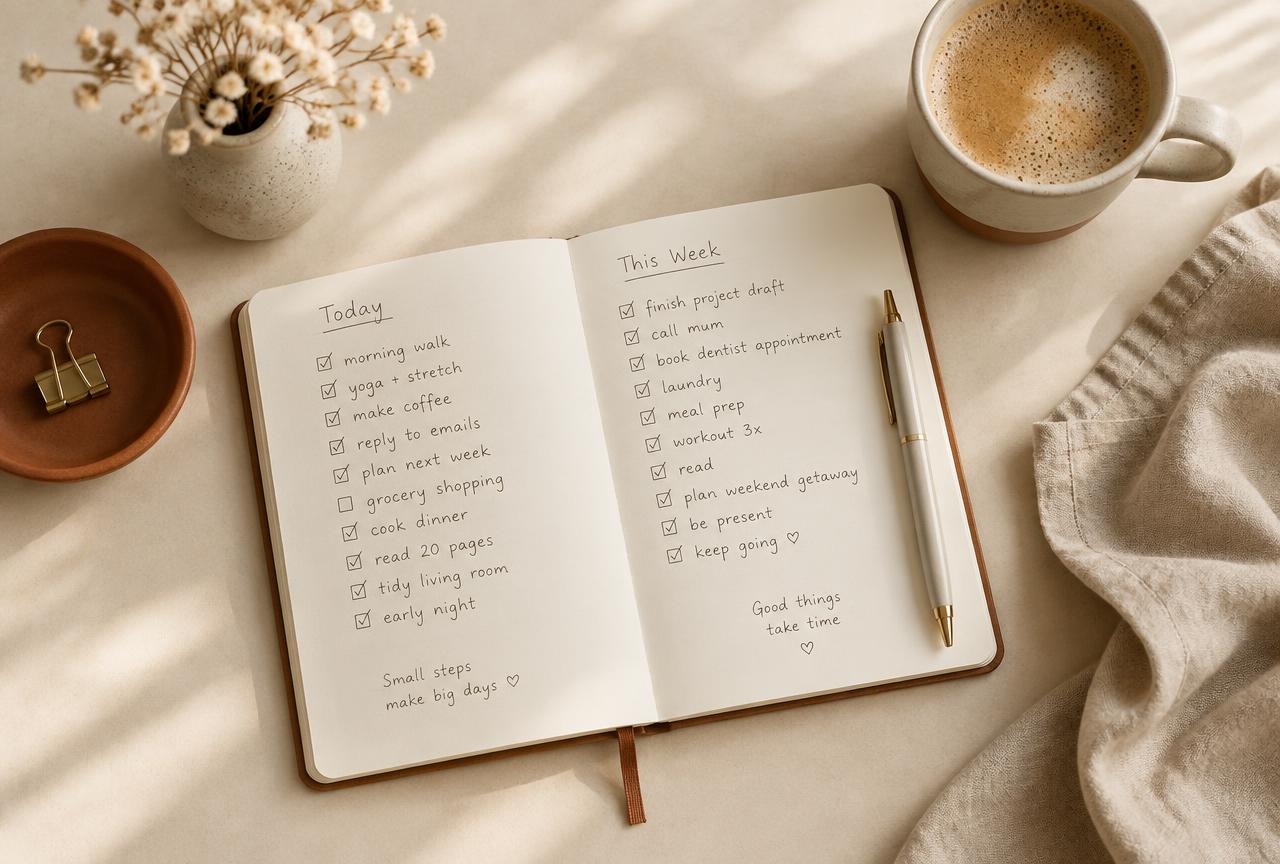 Today
☑ morning walk
☑ yoga + stretch
☑ make coffee
☑ reply to emails
☑ plan next week
☐ grocery shopping
☑ cook dinner
☑ read 20 pages
☑ tidy living room
☑ early night
Small steps
make big days ♡
This Week
☑ finish project draft
☑ call mum
☑ book dentist appointment
☑ laundry
☑ meal prep
☑ workout 3x
☑ read
☑ plan weekend getaway
☑ be present
☑ keep going ♡
Good things
take time
♡